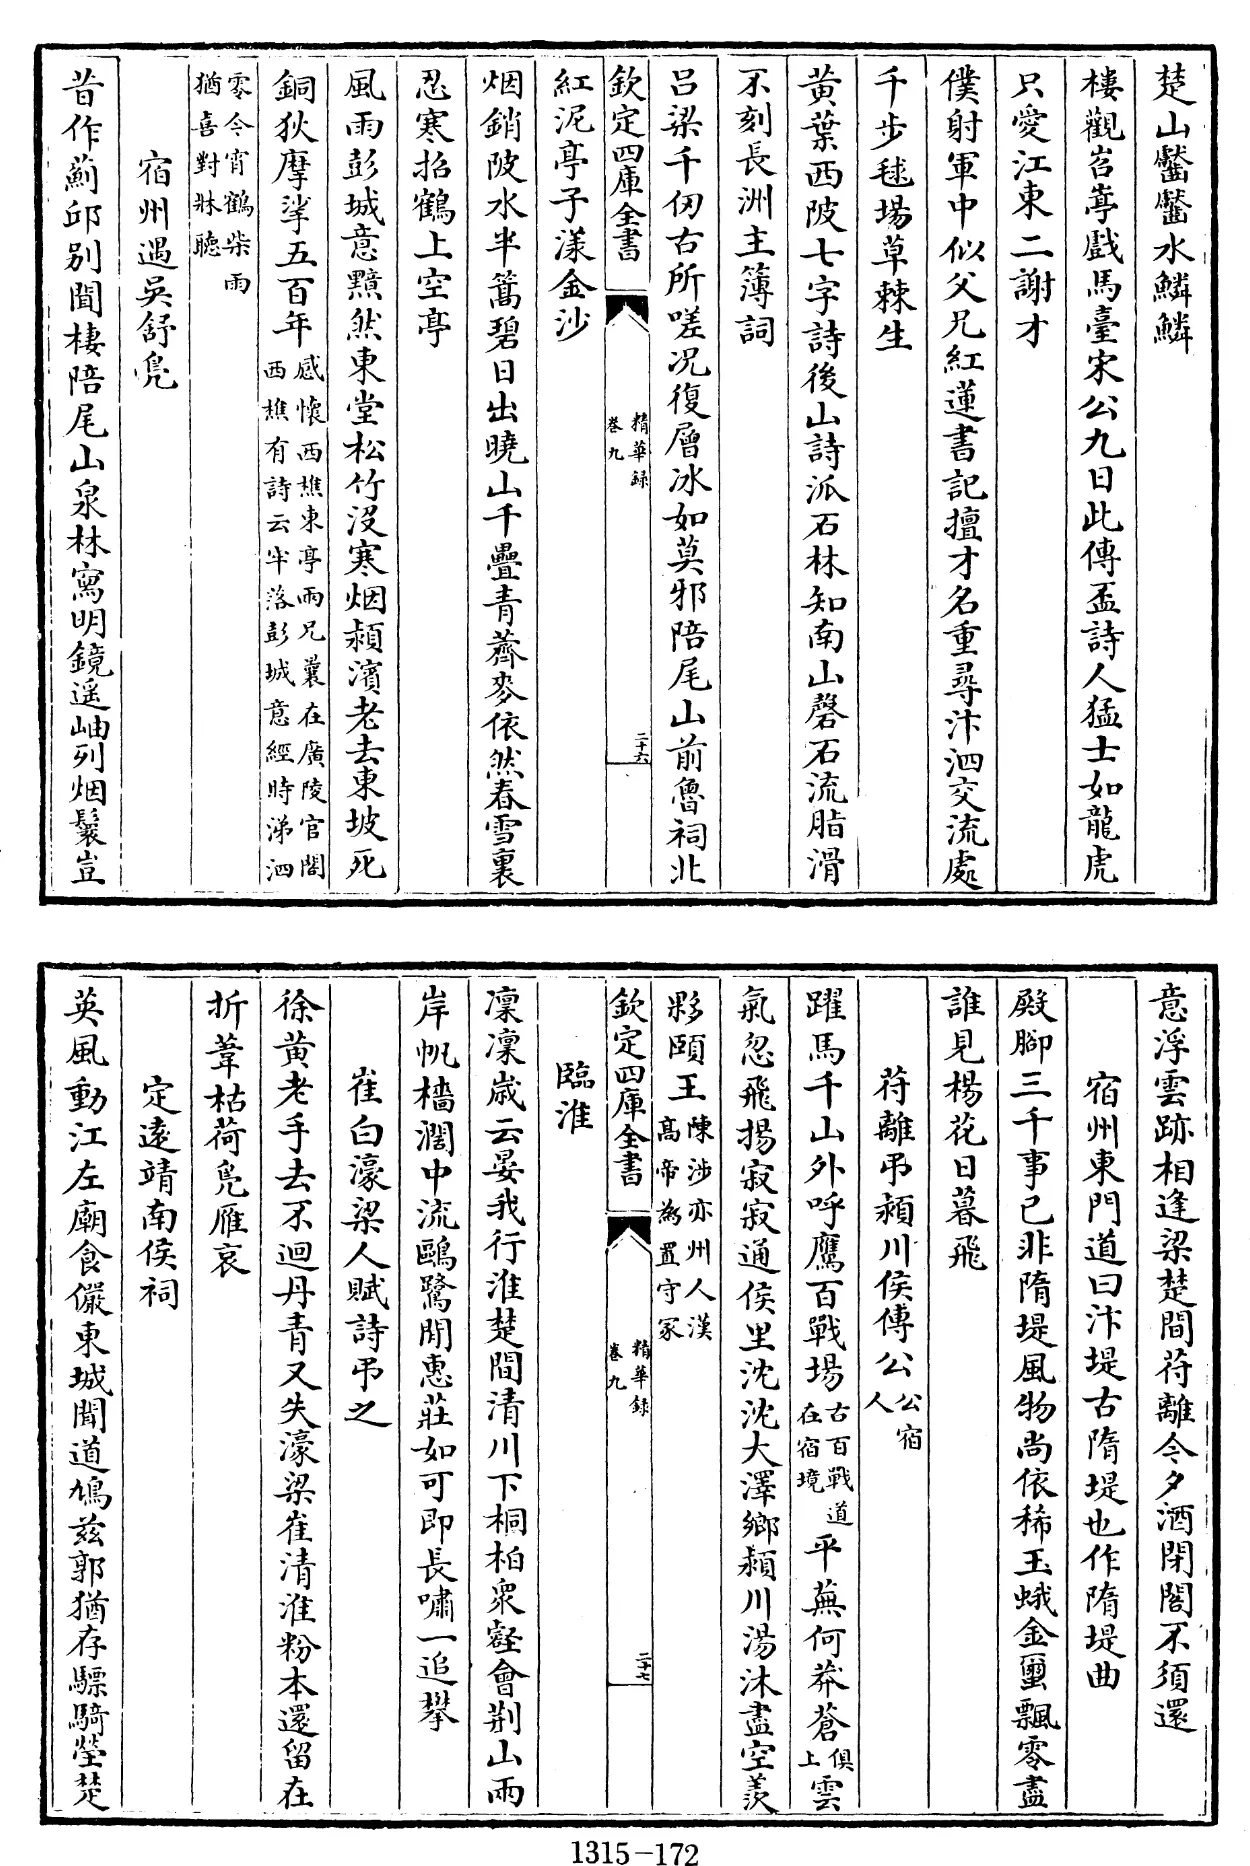 楚山鬱鬱水鱗鱗
樓觀岧嶤戲馬臺宋公九日此傳盃詩人猛士如龍虎
只愛江東二謝才
僕射軍中似父兄紅蓮書記擅才名重尋汴泗交流處
千步毬場草棘生
黄葉西陂七字詩後山詩派石林知南山磬石流脂滑
不刻長洲主簿詞
吕梁千仞古所嗟况復層冰如莫邪陪尾山前魯祠北
欽定四庫全書
精華録
卷九
二十六
紅泥亭子漾金沙
烟銷陂水半篙碧日出曉山千疊青薺麥依然春雪裏
忍寒招鶴上空亭
風雨彭城意黯然東堂松竹没寒烟潁濱老去東坡死
銅狄摩挲五百年感懷西樵東亭雨兄曩在廣陵官閣
西樵有詩云牢落彭城意經時涕泗
零今宵鶴柴雨
猶喜對牀聽
宿州遇吳舒鳧
昔作薊邱别聞棲陪尾山泉林寫明鏡遥岫列烟鬟豈
意浮雲跡相逢梁楚間苻離今夕酒閉閤不須還
宿州東門道曰汴堤古隋堤也作隋堤曲
殿脚三千事已非隋堤風物尚依稀玉蛾金璽飄零盡
誰見楊花日暮飛
苻離弔潁川侯傅公公宿
人
躍馬千山外呼鷹百戰場古百戰道
在宿境平蕪何莽蒼俱
上雲
氣忽飛揚寂寂通侯里沈沈大澤鄉潁川湯沐盡空羨
夥頤王陳涉亦州人漢
高帝為置守冢
欽定四庫全書
精華録
卷九
二十七
臨淮
凜凜歲云晏我行淮楚間清川下桐柏衆壑會荆山兩
岸帆檣濶中流鷗鷺閒惠莊如可即長嘯一追攀
崔白濠梁人賦詩弔之
徐黄老手去不迴丹青又失濠梁崔清淮粉本還留在
折葦枯荷鳧雁哀
定遠靖南侯祠
英風動江左廟食儼東城聞道鳩兹郭猶存驃騎塋楚
1315-172